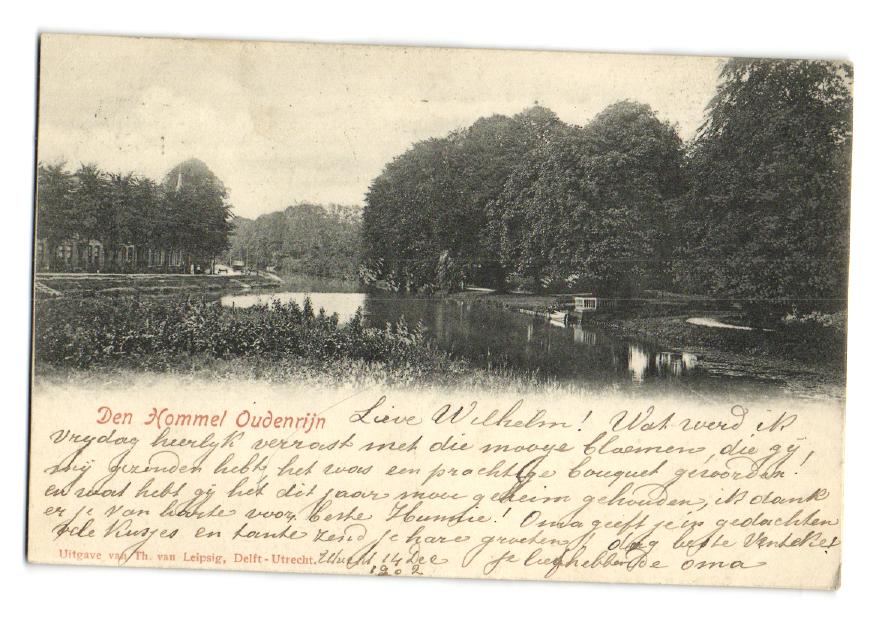 Den Hommel Oudenrijn
Lieve Wilhelm! Wat werd ik
vrydag heerlyk verrast met die mooye bloemen, die gÿ
mÿ gezonden hebt, het was een prachtige bouquet geworden!
en wat hebt gÿ het dit jaar mooi geheim gehouden, ik dank
er je van harte voor, beste Hunnie! Oma geeft je in gedachten
vele kusjes en tante zend je hare groeten! dag beste Ventske!
Uitgave van Th. van Leipsig, Delft-Utrecht. Utrecht 14 Dec je liefhebbende oma
1902